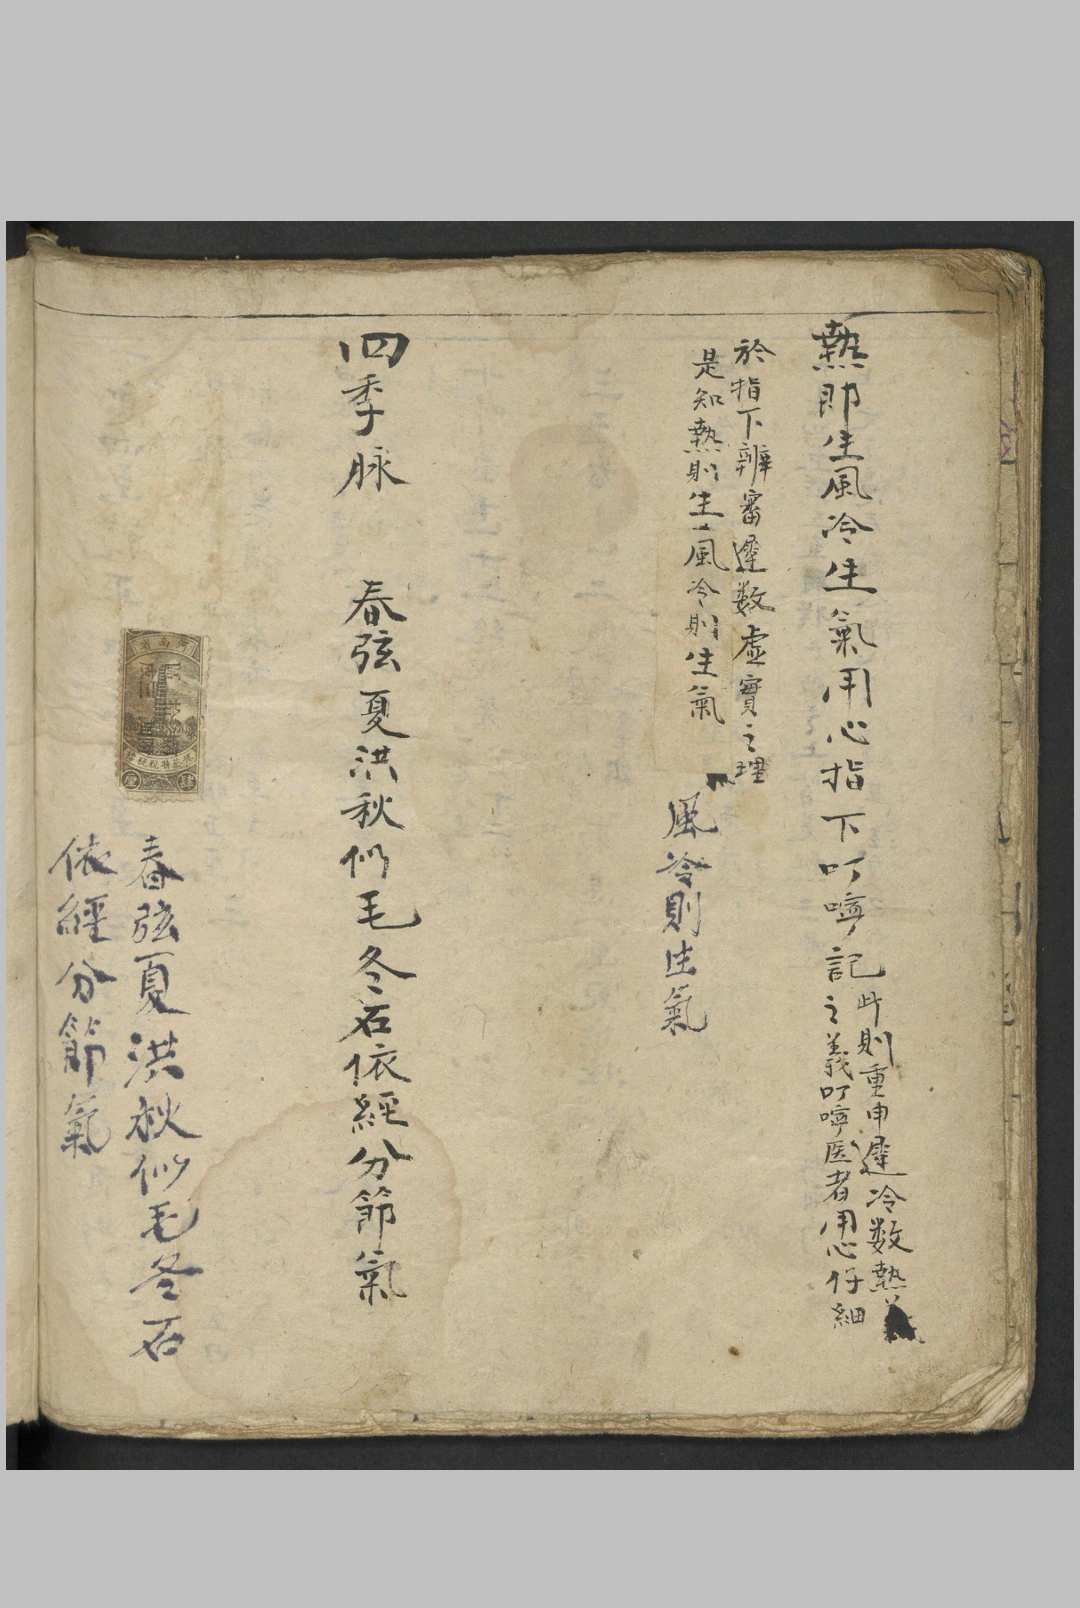 熱即生風冷生氣用心指下叮嚀記
此則重申遲冷数熱
之義叮嚀医者用心仔細
於指下辨審遲数虛實之理
是知熱則生風冷則生氣
風冷則生氣
四季脉 春弦夏洪秋似毛冬石依經分節氣
春弦夏洪秋似毛冬石
依經分節氣